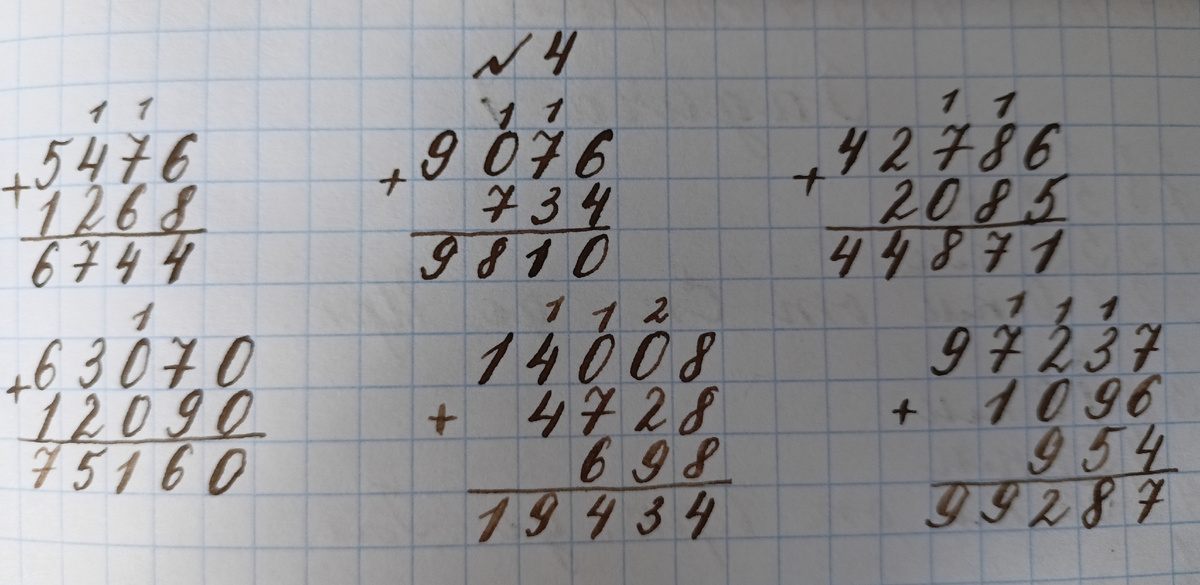 № 4
1 1
5476
+
1268
6744
1 1
9076
+
734
9810
1 1
42786
+
2085
44871
1
63070
+
12090
75160
1 1 2
14008
+ 4728
698
19434
1 1 1
97237
+ 1096
954
99287